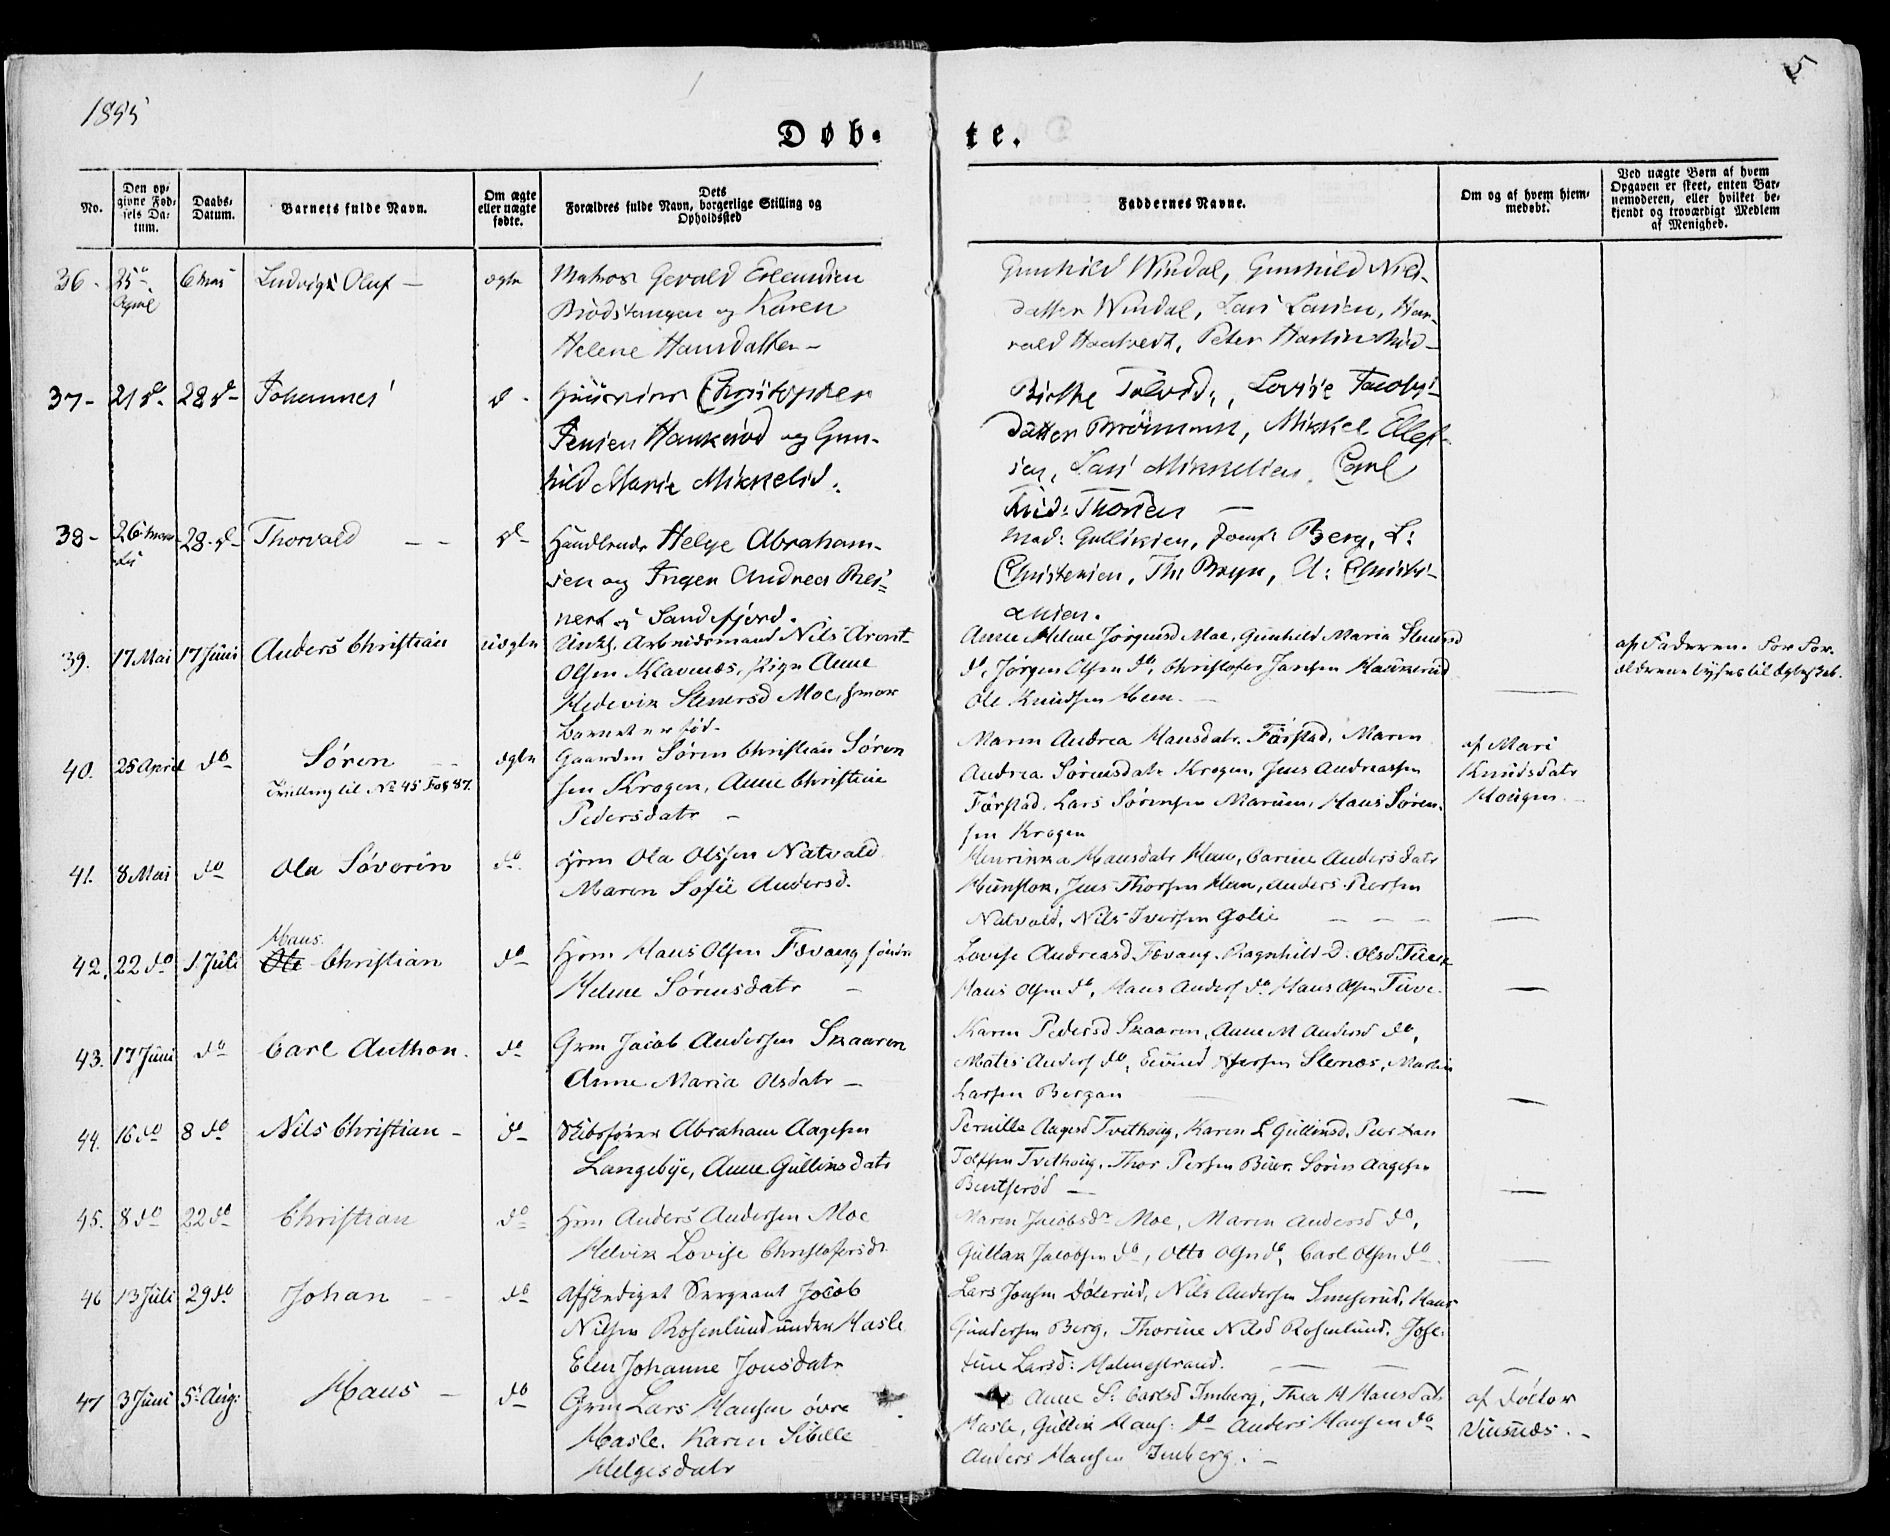 1855
5
Døb-
te.
No.
Den op-
givne Fød-
sels Da-
tum.
Daabs-
Datum.
Barnets fulde Navn.
Om ægte
eller uægte
fødte.
Dets
Forældres fulde Navn, borgerlige Stilling og
Opholdssted
Faddernes Navne.
Om og af hvem hjem-
medøbt.
Ved uægte Børn af hvem
Opgaven er skeet, enten Bar-
nemoderen, eller hvilket be-
kjendt og troværdigt Medlem
af Menighed.
36 - 25de April 6 Mai Ludvig Oluf — ægte
Matros Gerald Erlandsen
og Karen
Helene Hansdatter -
Gunhild Windal, Gunhild Niels-
datter Windal, Lars Larsen, Har-
rald Haatvedt, Peter Martin
37 - 21 d - 28 d - Johannes d -
Huusmand Christopher
Jensen Haukerød og Gun-
hild Marie Mikkelsd:
Birthe Lovise Jacobs-
datter Mikkel Ellef-
sen, Lars Mikkelsen, Carl
Thorsen —
38 - 28 d - Thorvald - - d -
Handlende Helge Abraham-
sen og Inger Andrea Rei-
nert i Sandefjord.
Mad: Gulliksen, Jomf: Berg, L:
Christensen, Th: Bryn, A: Christi-
ansen.
39. 17 Mai 17 Juni Anders Christian uægte
Unkl. Arbeidsmand Nils Arent
Olsen Klavenæs, Pige Anne
Hedevik Stenersd Moe, hvor
Barnet er fød.
Anne Helene Jørgensd Moe, Gunhild Maria Stenersd
do, Jørgen Olsen do, Christofer Jansen Haukerød
Ole Knudsen Hem. -
af Faderen. For For-
ældrene lyses til Ægteskab.
40. 25 April do Søren — ægte
Tvilling til No 45 Fol 87.
Gaardm Søren Christian Søren
sen Krogen, Anne Christine
Pedersdatr -
Maren Andrea Hansdatr. Førstad, Maren
Andrea Sørensdatr Krogen, Jens Andreassen
Førstad, Lars Sørensen Marum, Hans Søren-
sen Krogen
af Mari
Knudsdatr
Hougen. -
41. 8 Mai do Ole Søverin do.
Hrm Ole Olssen Natvald
Maren Sofie Andersd.
Henrikka Hansdatr Hem, Carine Andersdatr
Jens Thorsen Hem, Anders Peersen
Natvald, Nils Iversen Golie - - -
42. 22 do 1 Juli Hans
Ole Christian do
Hrm Hans Olsen Fevang søndre
Helene Sørensdatr -
Lovise Andreasd Fevang. Ragnhild D. Olsd
Hans Olsen do, Hans Anders do Hans Olsen
43. 17 Juni do Carl Anthon. do
Grm Jacob Andersen Skaaren
Anne Maria Olsdatr -
Karen Pedersd Skaaren, Anne M Andersd do,
Mates Anders do, Eivind Stenæs, Martin
Larsen Bergan
44. 16 do 8 do Nils Christian - do
Skibsfører Abraham Aagesen
Langebye, Anne Gullinsdatr
Pernille Aagesd Tvethoug, Karen L Gullinsd,
Tvethoug, Thor Persen Søren Aagesen
Bentserød —
45. 8 do 22 do Christian do
Hrm Anders Andersen Moe
Helvik Lovise Christofersdr
Maren Jacobsdr Moe, Maren Andersd do,
Gullak Jacobsen do, Otto Olsen do, Carl Olsen do.
46 13 Juli 29 do Johan - do
Afskediget Sergeant Jocob
Nilsen Rosenlund under Hasle
Elen Johanne Jonsdatr
Lars Jonsen Dølerud, Nils Andersen Hans
Gundersen Berg, Thorine Nilsd Rosenlund, Jose-
fine Larsd: Holmestrand.
47 3 Juni 5 Aug: Hans - do
Grm Lars Hansen øvre
Hasle. Karen Sibille
Helgesdatr
Anne S. Carlsd Imberg, Thea H Hansdatr
Hasle, Gullik Hans: do Anders Hansen do
Anders Hansen Imberg. -
af Doctor